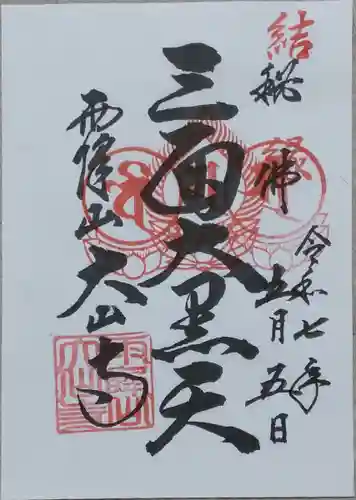 結
秘佛
令和七年
五月五日
三面大黒天
大山寺